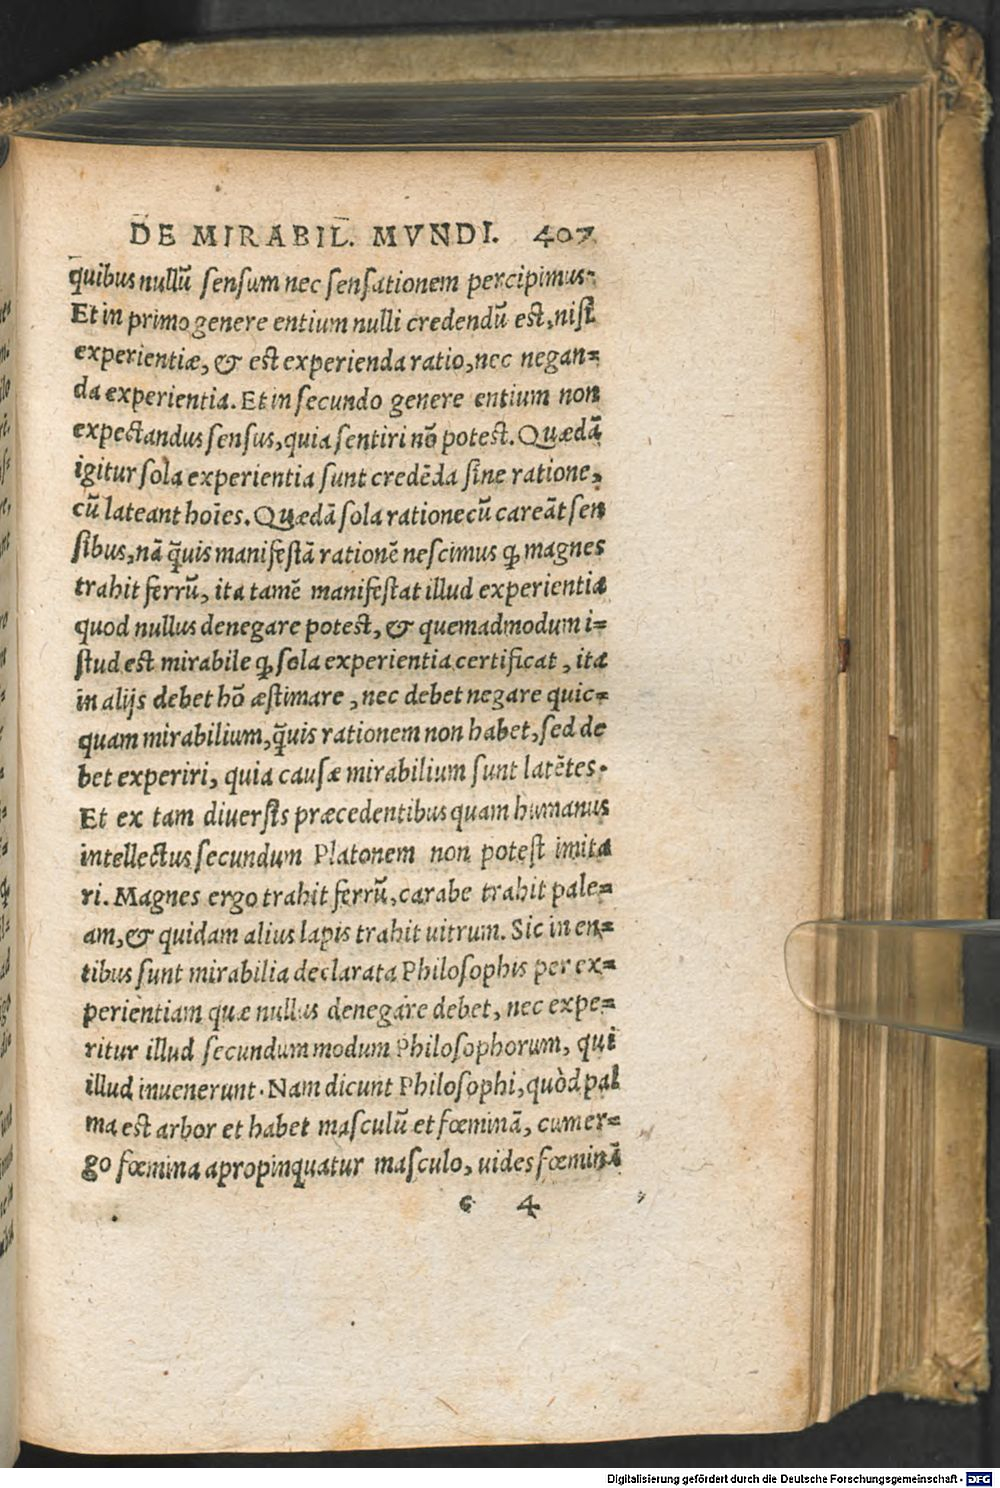 DE MIRABIL. MVNDI. 407
quibus nullũ sensum nec sensationem percipimus.
Et in primo genere entium nulli credendũ est, nisi
experientiæ, & est experienda ratio, nec negan=
da experientia. Et in secundo genere entium non
expectandus sensus, quia sentiri nõ potest. Quædã
igitur sola experientia sunt credẽda sine ratione,
cũ lateant hoĩes. Quædã sola ratione cũ careãt sen
sibus, nã q̃uis manifestã rationẽ nescimus ꝙ magnes
trahit ferrũ, ita tamẽ manifestat illud experientia
quod nullus denegare potest, & quemadmodum i=
stud est mirabile ꝙ sola experientia certificat, ita
in alijs debet hõ æstimare, nec debet negare quic=
quam mirabilium, q̃uis rationem non habet, sed de
bet experiri, quia causæ mirabilium sunt latẽtes.
Et ex tam diuersis præcedentibus quam humanus
intellectus secundum Platonem non potest imita
ri. Magnes ergo trahit ferrũ, carabe trahit pale=
am, & quidam alius lapis trahit uitrum. Sic in en=
tibus sunt mirabilia declarata Philosophis per ex=
perientiam quæ nullus denegare debet, nec expe=
ritur illud secundum modum Philosophorum, qui
illud inuenerunt. Nam dicunt Philosophi, quòd pal
ma est arbor et habet masculũ et fœminã, cum er=
go fœmina apropinquatur masculo, uides fœminã
4
Digitalisierung gefördert durch die Deutsche Forschungsgemeinschaft - DFG